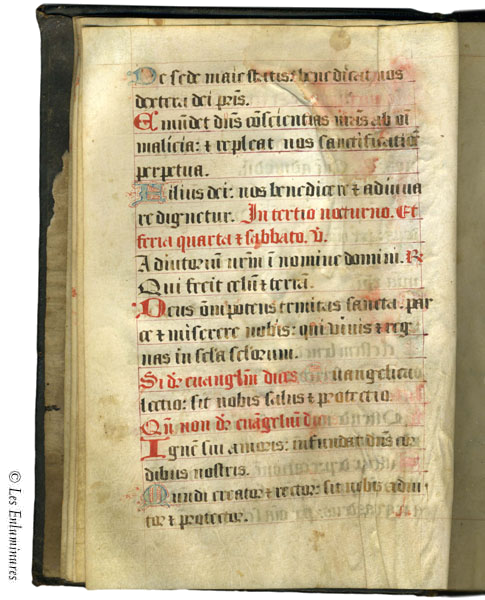 De sede maiestatis: benedicat nos
dextera dei pris.
Emundet dns cōscientias nrās ab oī
malicia: & repleat nos sanctificatiōe
perpetua.
Filius dei: nos benedicere & adiuua
re dignetur. In tertio nocturno. Et
feria quarta & sabbato. V.
Adiutoriū nrm ī nomine domini. R
Qui fecit celū & terrā.
Deus omīpotens trinitas sancta. par
ce & miserere nobis: qui viuis & reg
nas in scla sclorum.
Si de euanglīm dices. euangelica
lectio: sit nobis salus & protectio.
Qn non de euāgelium
Ignē sui amoris: infundat dns cor
dibus nostris.
Mundi creator & rector: sit nobis adiu
tor & protector.
© Les Enluminures